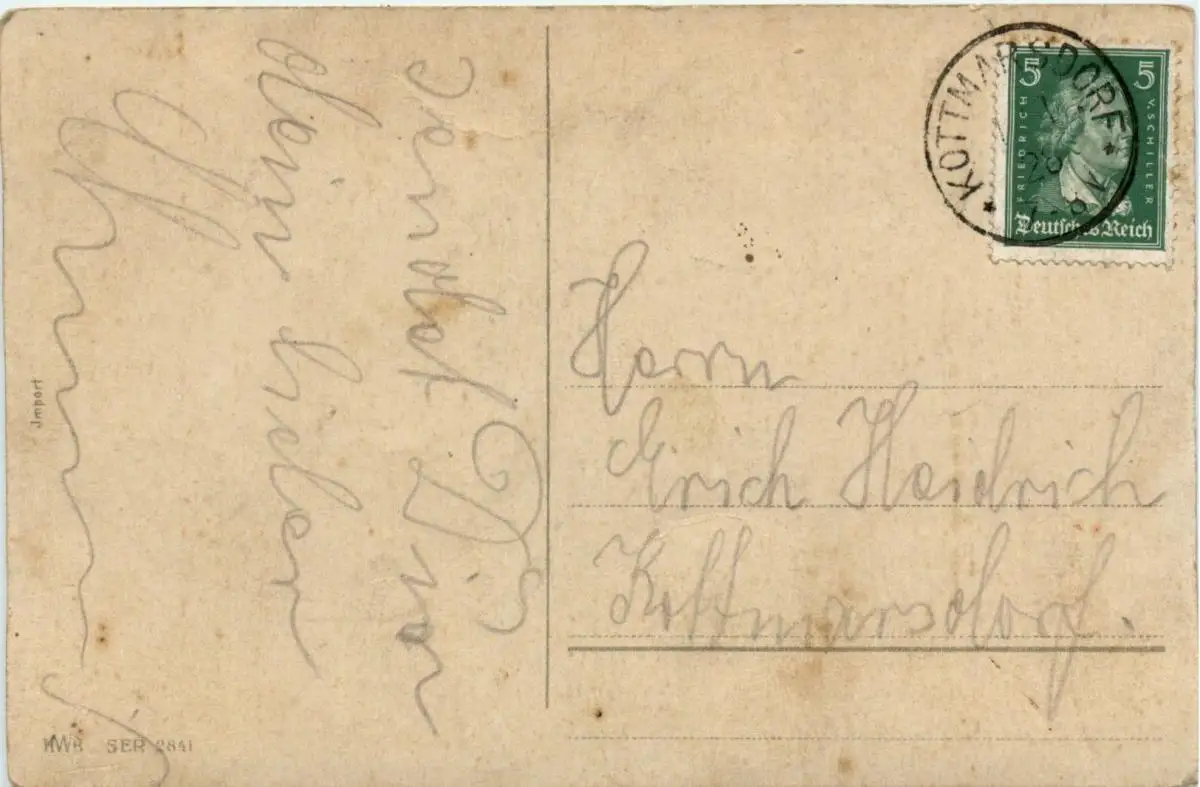 sendet Dir
dein lieber
Jmport
HWB SER 2841
KOTTMARSDORF
28
7-8V
5 5
FRIEDRICH V. SCHILLER
Deutsches Reich
Herrn
Erich Heidrich
Kottmarsdorf.